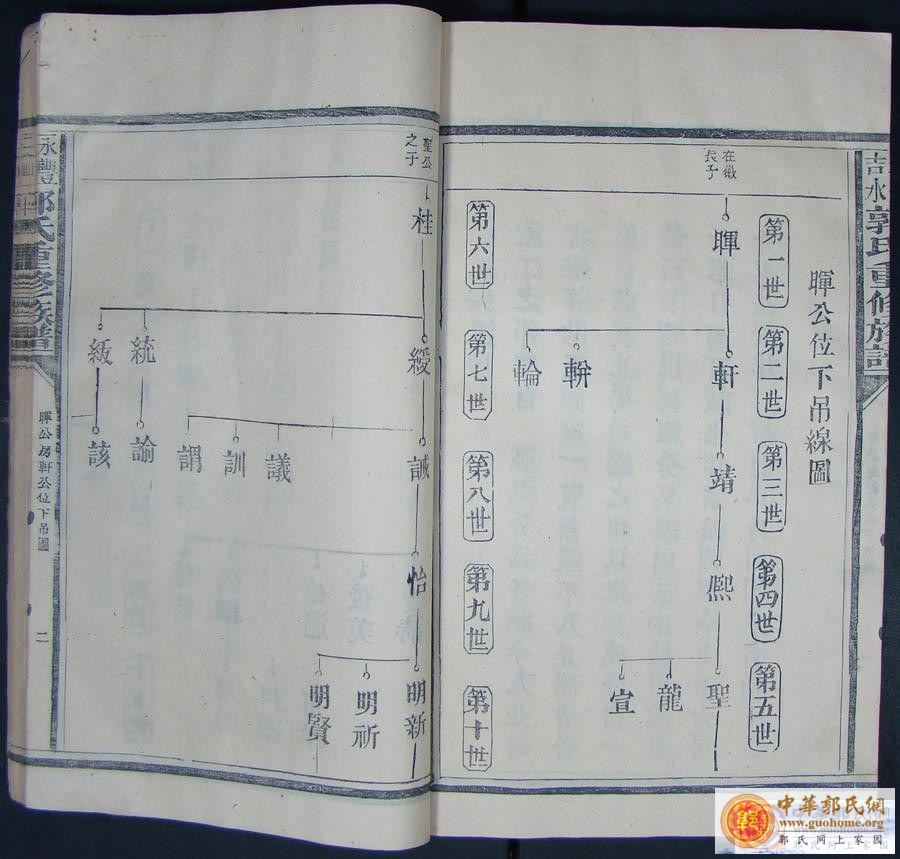 吉水郭氏重修族譜
暉公位下吊線圖
第一世
第二世
第三世
第四世
第五世
在徵
長子
暉
軒
輧
輪
靖
熈
聖
龍
宣
第六世
第七世
第八世
第九世
第十世
聖公
之子
桂
綬
統
級
誠
議
訓
謂
諭
該
怡
明新
明祈
明賢
永豐
郭氏重修族譜
暉公房軒公位下吊圖
二
中華郭氏網
www.guohome.org
郭氏网上家园